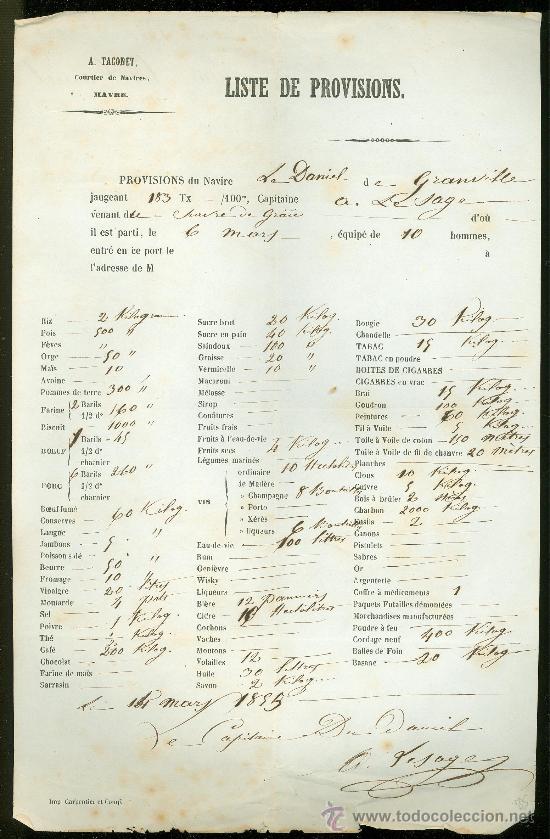 A. TACONET,
Courtier de Navires,
HAVRE.
LISTE DE PROVISIONS.
PROVISIONS du Navire Le Daniel de Granville
jaugeant 183 Tx /100es, Capitaine A. Lesage
venant de Havre de Grâce d'où
il est parti, le 6 mars , équipé de 10 hommes,
entré en ce port le à
l'adresse de M
Riz 2 Kilogram
Pois 500 "
Fèves "
Orge 50 "
Maïs 10
Avoine "
Pommes de terre 300 "
Farine 2 Barils 160 "
1/2 do
Biscuit 1000 "
BOEUF 1 Barils 45
1/2 do
charnier
PORC 6 Barils 260 "
1/2 do
charnier
Bœuf fumé
Conserves 60 Kilog
Langue "
Jambons 5 "
Poisson salé "
Beurre 50 "
Fromage 10 "
Vinaigre 20 litres
Moutarde 4 pots
Sel Kilog
Poivre 1 Kilog
Thé 1 Kilog
Café 200 Kilog
Chocolat
Farine de maïs
Sarrasin
Sucre brut 20 Kilog
Sucre en pain 40 Kilog
Saindoux 100 "
Graisse 20 "
Vermicelle 10 "
Macaroni
Mélosse
Sirop
Confitures
Fruits frais
Fruits à l'eau-de-vie
Fruits secs 4 Kilog
Légumes marinés
VIN ordinaire 10 Hectolitres
de Madère
» Champagne 8 Bouteilles
» Porto
» Xérès
» liqueurs 6 Bouteilles
Eau-de-vie 100 litres
Rum
Genièvre
Wisky
Liqueurs
Bière 12 Panniers
Cidre Hectolitres
Cochons
Vaches
Moutons
Volailles 12
Huile 30 litres
Savon 2 Kilog
Bougie 30 Kilog
Chandelle
TABAC 15 Kilog
TABAC en poudre
BOITES DE CIGARRES
CIGARRES en vrac
Brai 15 Kilog
Goudron 100 Kilog
Peintures 60 Kilog
Fil à Voile 5 Kilog
Toile à Voile de coton 150 mètres
Toile à Voile de fil de chanvre 20 Mètres
Planches
Clous 10 Kilog
Cuivre 5 Kilog
Bois à brûler 2
Charbon 2000 Kilog
Fusils 2
Canons
Pistolets
Sabres
Or
Argenterie
Coffre à médicaments 1
Paquets Futailles démontées
Marchandises manufacturées
Poudre à feu
Cordage neuf 400 Kilog
Balles de Foin
Basane 20 Kilog
Le 14 mars 1855
Le Capitaine Du Daniel
A. Lesage
Imp Carpentier et Compe
www.todocoleccion.net